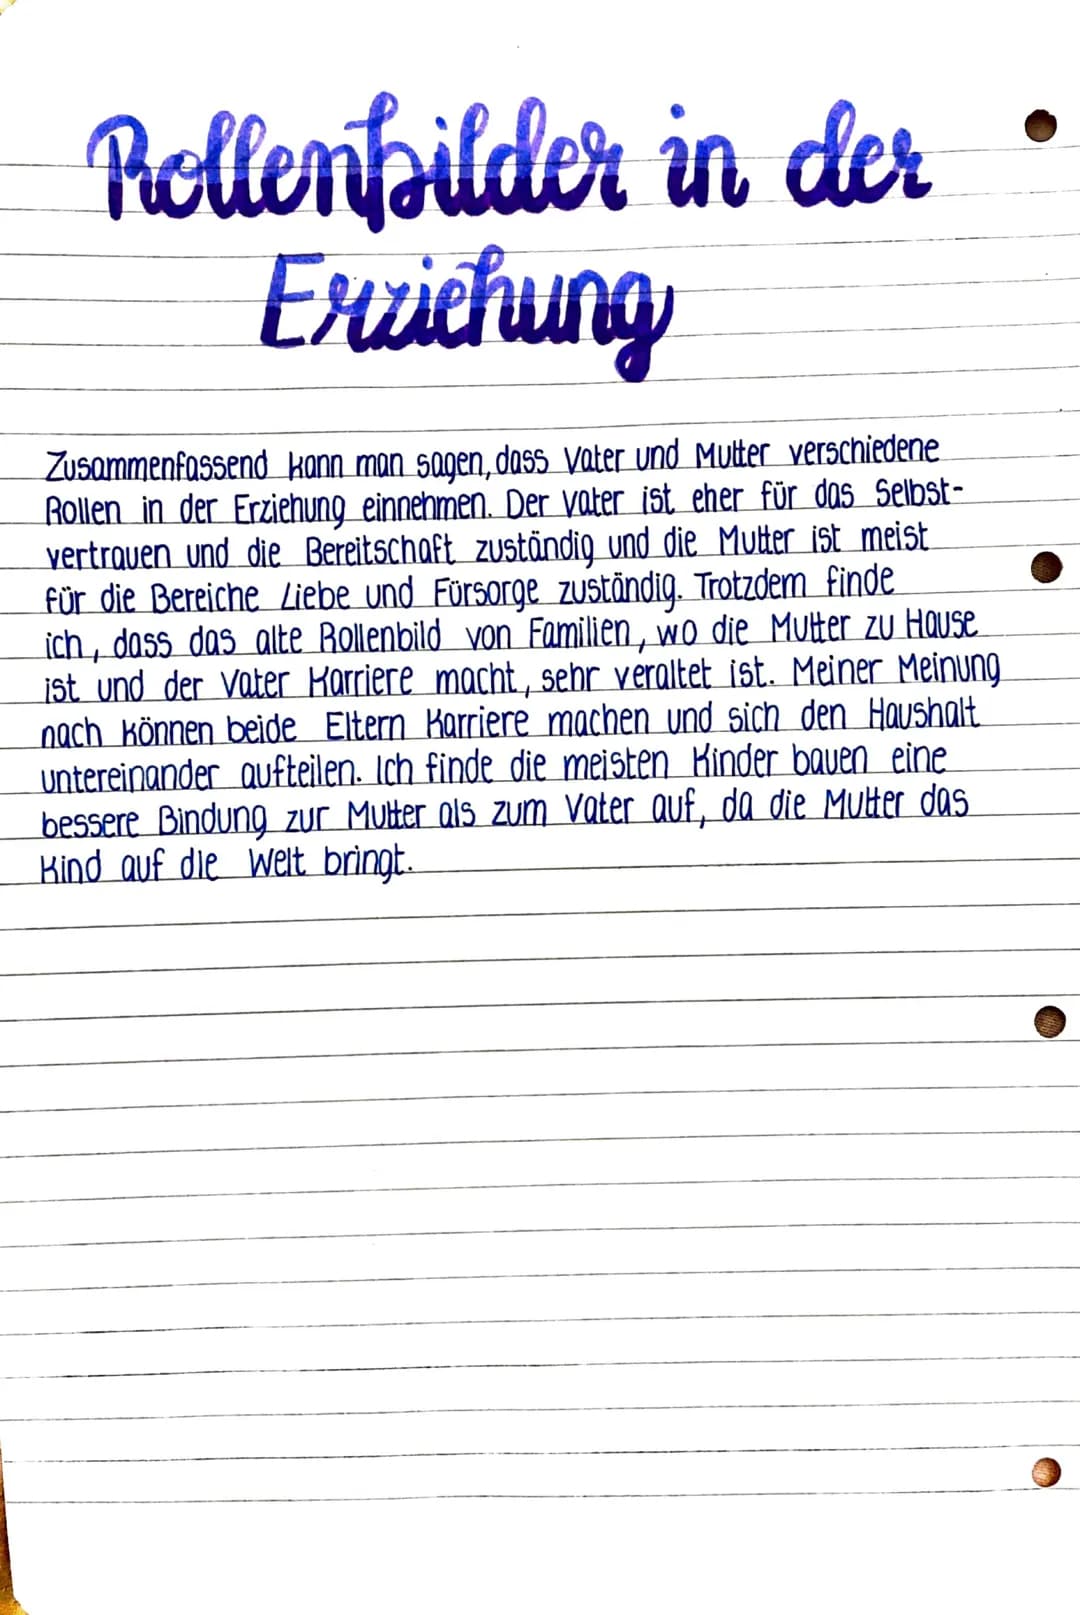 Rollenbilder in der
Erziehung
Zusammenfassend kann man sagen, dass Vater und Mutter verschiedene
Rollen in der Erziehung einnehmen. Der Vater ist eher für das Selbst-
vertrauen und die Bereitschaft zuständig und die Mutter ist meist
für die Bereiche Liebe und Fürsorge zuständig. Trotzdem finde
ich, dass das alte Rollenbild von Familien, wo die Mutter zu Hause
ist und der Vater Karriere macht, sehr veraltet ist. Meiner Meinung
nach können beide Eltern Karriere machen und sich den Haushalt
untereinander aufteilen. Ich finde die meisten Kinder bauen eine
bessere Bindung zur Mutter als zum Vater auf, da die Mutter das
Kind auf die Welt bringt.